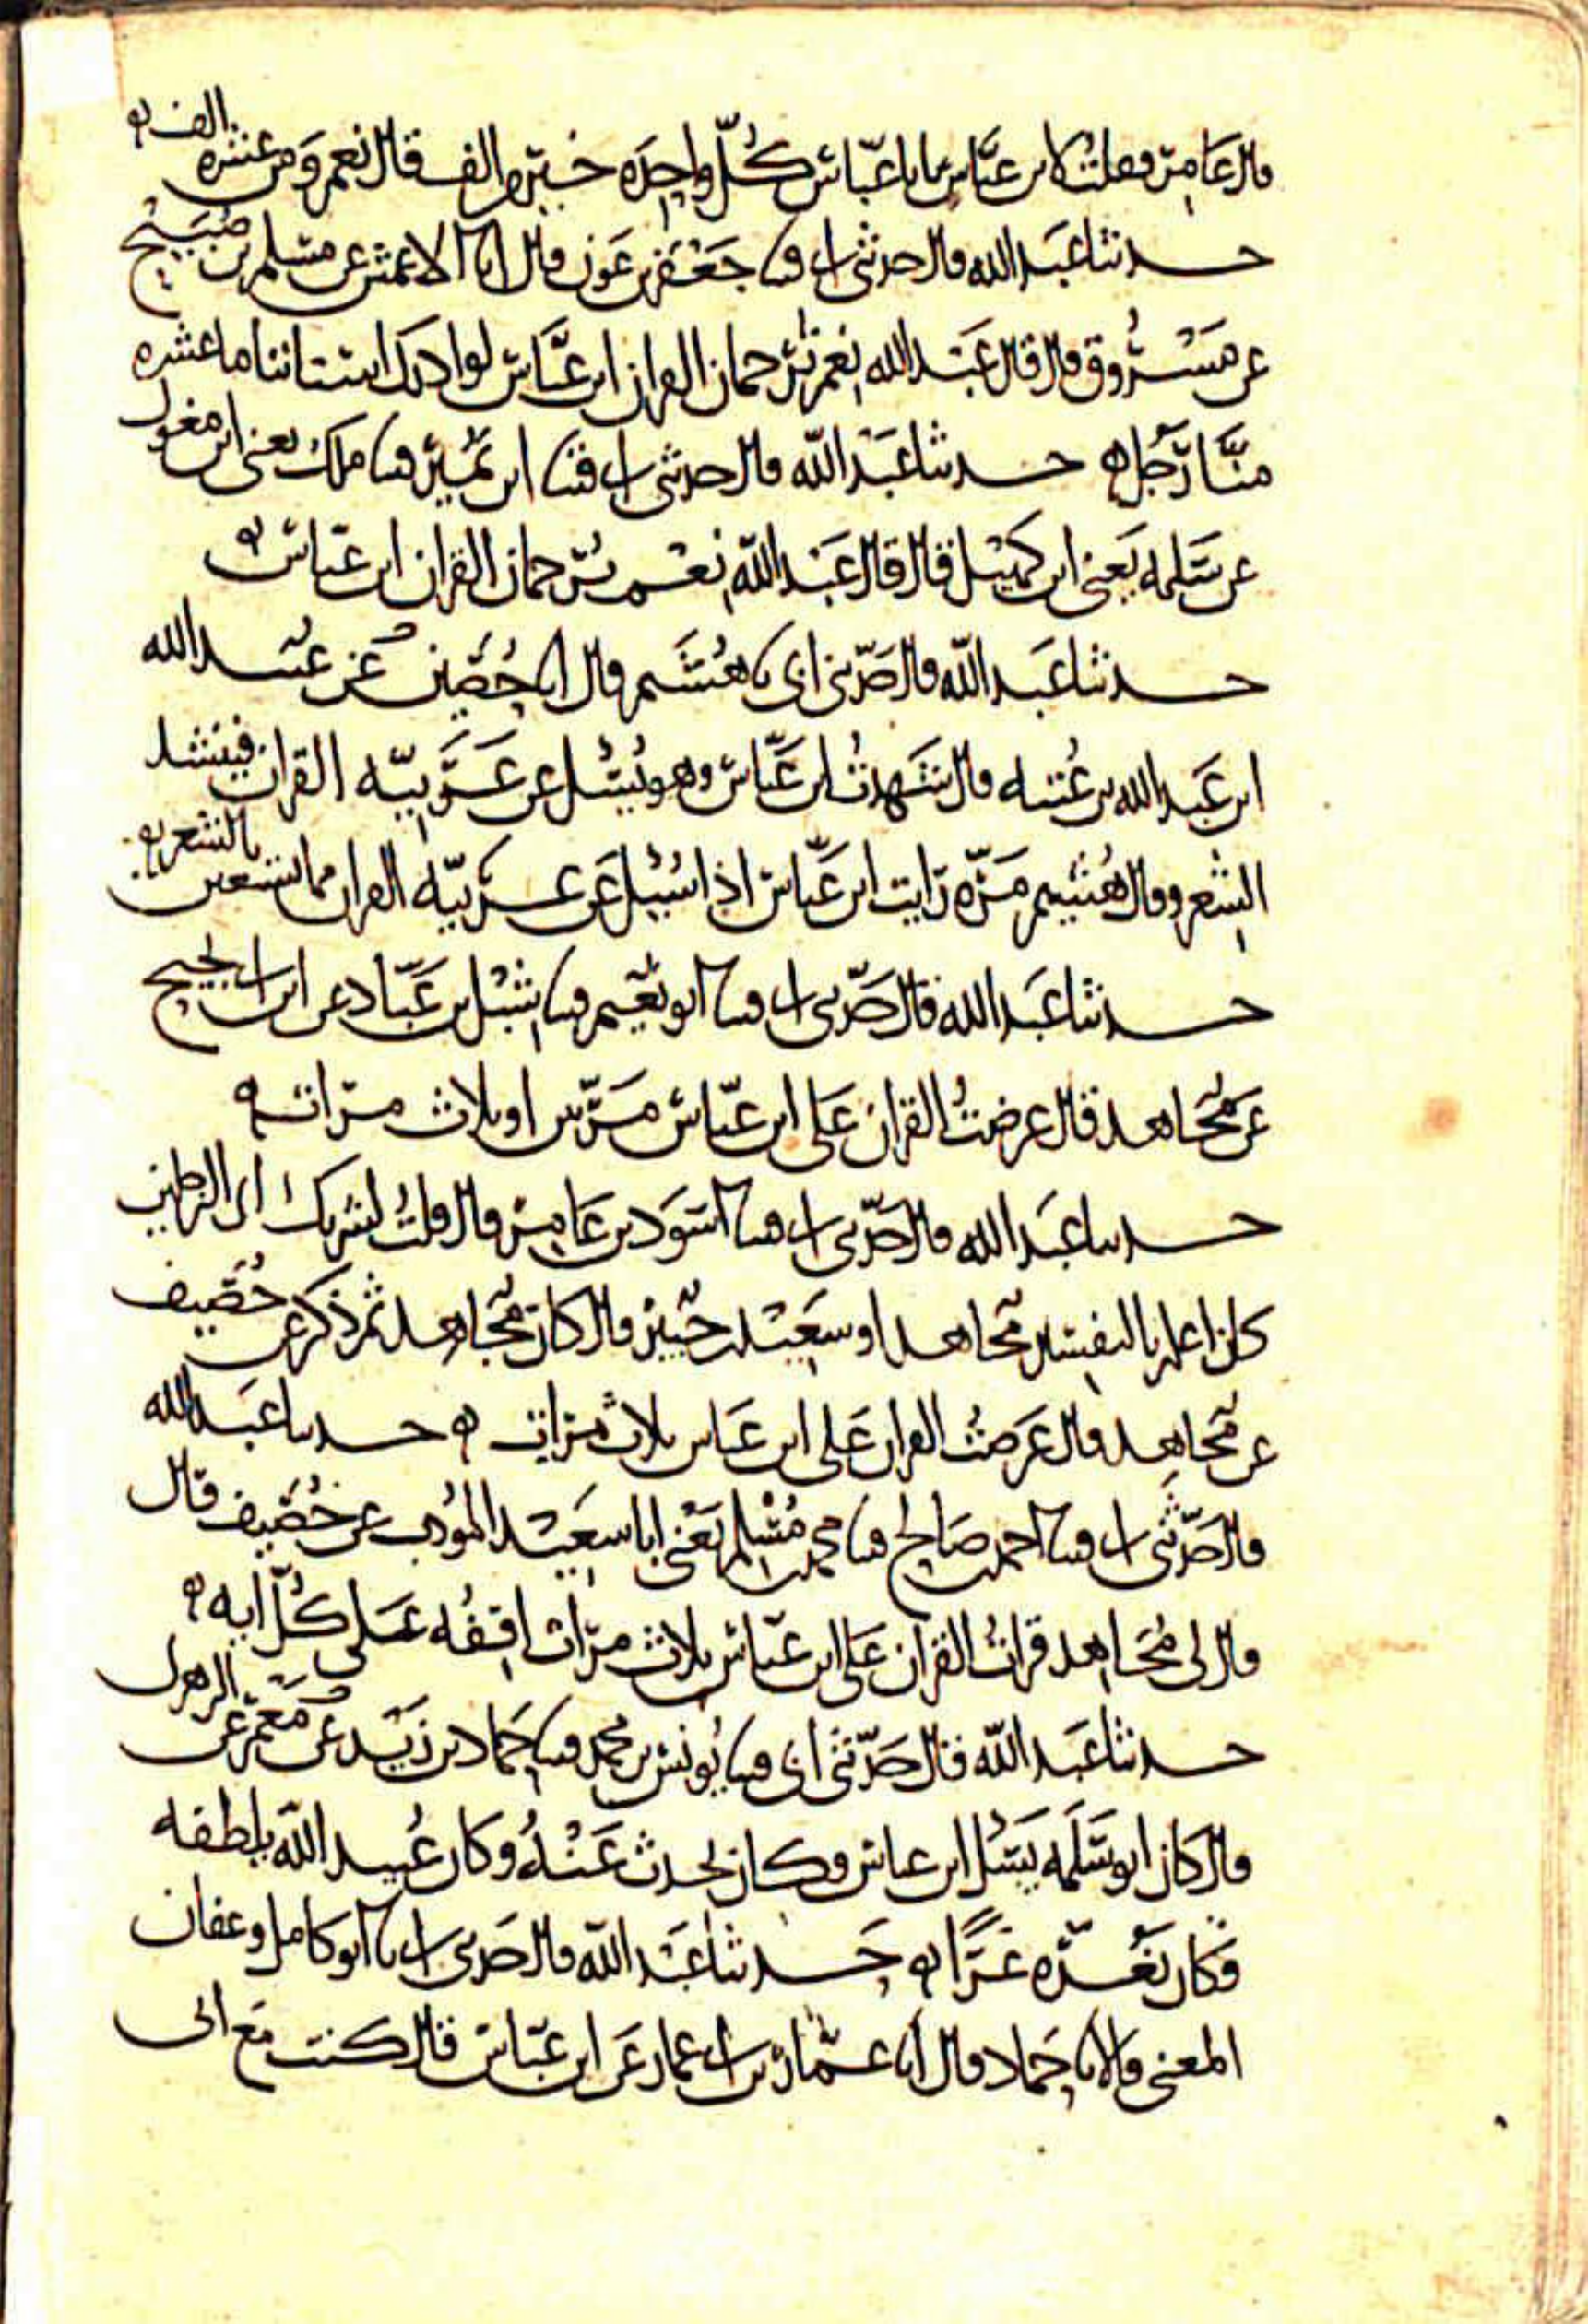 قال عامر فقلت لابن عباس يابا عباس كل واحدة خير من الف قال نعم ومن عشره الف
حدثنا عبد الله قال حدثني ابي قثنا جعفر بن عون قال انا الاعمش عن مسلم بن صبيح
عن مسروق قال قال عبد الله نعم ترجمان القران ابن عباس لو ادرك اسناننا ما عشره
منا رجل حدثنا عبد الله قال حدثني ابي قثنا ابن نمير قثنا ملك يعني ابن مغول
عن سلمه يعني ابن كهيل قال قال عبد الله نعم ترجمان القران ابن عباس
حدثنا عبد الله قال حدثني ابي نا هشيم قال انا حصين عن عبيد الله
ابن عبد الله بن عتبه قال شهدت ابن عباس وهو يسئل عن عربيه القران فينشد
الشعر وقال هشيم مره رايت ابن عباس اذا سئل عن عربيه القران مما يستعين بالشعر
حدثنا عبد الله قال حدثني ابي قثنا ابو نعيم قثنا شبل بن عباد عن ابن ابي نجيح
عن مجاهد قال عرضت القران على ابن عباس مرتين او ثلاث مرات
حدثنا عبد الله قال حدثني ابي قثنا اسود بن عامر قال قلت لشريك اي الرجلين
كان اعلم بالتفسير مجاهد او سعيد بن جبير قال كان مجاهد ثم ذكر عن خصيف
عن مجاهد قال عرضت القران على ابن عباس ثلاث مرات حدثنا عبد الله
قال حدثني ابي قثنا احمد بن صالح قثنا محمد بن مسلم يعني ابا سعيد المودب عن خصيف قال
قال لي مجاهد قرات القران على ابن عباس ثلاث مرات اقفه على كل ايه
حدثنا عبد الله قال حدثني ابي قثنا يونس بن محمد قثنا حماد بن زيد عن معمر عن الزهري
قال كان ابو سلمه يسئل ابن عباس وكان يحدث عنه وكان عبيد الله يلطفه
فكان يغره غرا حدثنا عبد الله قال حدثني ابي نا ابو كامل وعفان
المعنى قالا نا حماد قال انا عمار بن ابي عمار عن ابن عباس قال كنت مع ابي